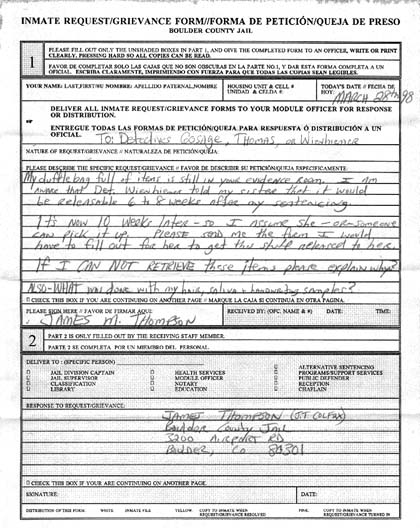 INMATE REQUEST/GRIEVANCE FORM//FORMA DE PETICIÓN/QUEJA DE PRESO
BOULDER COUNTY JAIL
1
PLEASE FILL OUT ONLY THE UNSHADED BOXES IN PART 1, AND GIVE THE COMPLETED FORM TO AN OFFICER, WRITE OR PRINT
CLEARLY, PRESSING HARD SO ALL COPIES CAN BE READ.
FAVOR DE COMPLETAR SOLO LAS CAJAS QUE NO SON OBSCURAS EN LA PARTE NO.1, Y DAR ESTA FORMA COMPLETA A UN
OFICIAL. ESCRIBA CLARAMENTE, IMPRIMIENDO CON FUERZA PARA QUE TODAS LAS COPIAS SEAN LEGIBLES.
YOUR NAME/LAST,FIRST/SU NOMBRE/APELLIDO PATERNAL,NOMBRE
HOUSING UNIT & CELL #
UNIDAD & CELDA #
TODAY'S DATE/FECHA DE
HOY:
MARCH 28TH 98
DELIVER ALL INMATE REQUEST/GRIEVANCE FORMS TO YOUR MODULE OFFICER FOR RESPONSE
OR DISTRIBUTION.
ENTREGUE TODAS LAS FORMAS DE PETICIÓN/QUEJA PARA RESPUESTA Ó DISTRIBUCIÓN A UN
OFICIAL.
To: Detectives Gosage, Thomas, or Wienheimer
NATURE OF REQUEST/GRIEVANCE // NATURALEZA DE PETICIÓN/QUEJA:
PLEASE DESCRIBE THE SPECIFIC REQUEST/GRIEVANCE // FAVOR DE DESCRIBIR SU PETICIÓN/QUEJA ESPECIFICAMENTE:
My dufflebag full of items is still in your evidence room. I am
aware that Det. Wienheimer told my sister that it would
be releasable 6 to 8 weeks after my sentencing.
It's now 10 weeks later - so I assume she - or - someone
can pick it up. Please send me the form I would
have to fill out for her to get this stuff released to her.
If I CAN NOT RETRIEVE these items please explain why?
ALSO - WHAT was done with my hair, saliva & handwriting samples?
CHECK THIS BOX IF YOU ARE CONTINUING ON ANOTHER PAGE // MARQUE LA CAJA SI CONTINUA EN OTRA PÁGINA.
PLEASE SIGN HERE // FAVOR DE FIRMAR AQUI:
JAMES M. THOMPSON
RECEIVED BY: (OFC. NAME & #)
DATE:
TIME:
2
PART 2 IS ONLY FILLED OUT BY THE RECEIVING STAFF MEMBER.
PARTE 2 SE COMPLETA POR UN MIEMBRO DEL PERSONAL.
DELIVER TO : (SPECIFIC PERSON)
JAIL DIVISION CAPTAIN
JAIL SUPERVISOR
CLASSIFICATION
LIBRARY
HEALTH SERVICES
MODULE OFFICER
NOTARY
EDUCATION
ALTERNATIVE SENTENCING
PROGRAMS/SUPPORT SERVICES
PUBLIC DEFENDER
RECEPTION
CHAPLAIN
RESPONSE TO REQUEST/GRIEVANCE:
JAMES THOMPSON (J.T. COLFAX)
Boulder County Jail
3200 AIRPORT RD
Boulder, Co 80301
CHECK THIS BOX IF YOU ARE CONTINUING ON ANOTHER PAGE.
SIGNATURE:
DATE:
TIME:
DISTRIBUTION OF FORM:
WHITE
INMATE FILE
YELLOW
COPY TO INMATE WHEN
REQUEST/GRIEVANCE RESOLVED
PINK
COPY TO INMATE WHEN
REQUEST/GRIEVANCE TURNED IN